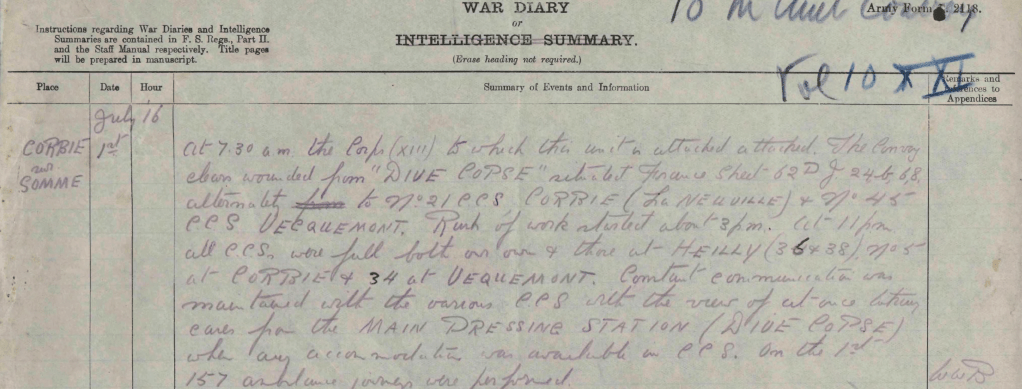 WAR DIARY
or
INTELLIGENCE SUMMARY.
(Erase heading not required.)
Army Form 2118.
10 M
Vol 10 X XI
Instructions regarding War Diaries and Intelligence
Summaries are contained in F. S. Regs., Part II.
and the Staff Manual respectively. Title pages
will be prepared in manuscript.
Place Date Hour Summary of Events and Information Remarks and references to Appendices
July 16
CORBIE
sur
SOMME
1st
At 7.30 a.m. the Corps (XIII) to which this unit is attached attacked. The Convoy
clears wounded from "DIVE COPSE" situated France Sheet 62D J. 24.b.6.8.
alternately from to No 21 CCS CORBIE (La NEUVILLE) & No 45
CCS VECQUEMONT. Rush of work started about 3 pm. At 11 pm
all CCS. were full both our own & those at HEILLY (36 & 38), No 5
at CORBIE & 34 at VEQUEMONT. Constant communication was
maintained with the various CCS with the view of at once taking
cases from the MAIN DRESSING STATION (DIVE COPSE)
when any accommodation was available in CCS. On the 1st
157 ambulance journeys were performed.